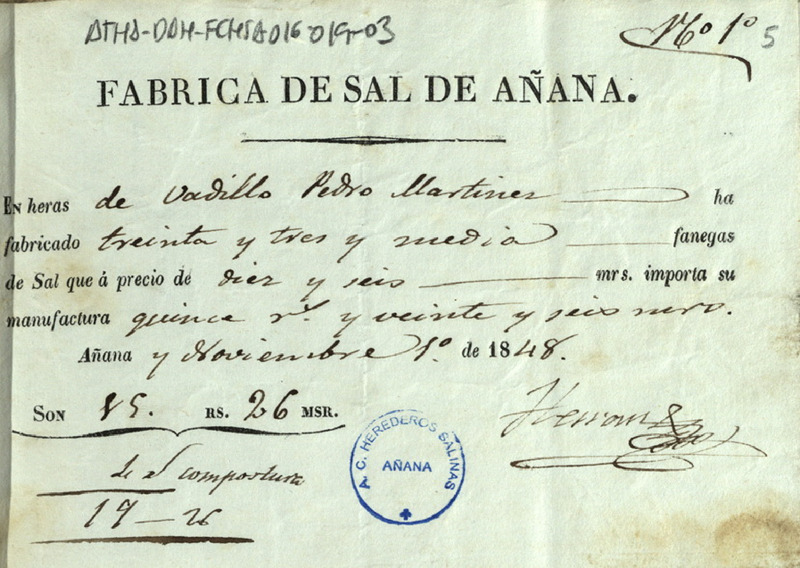 ATHA-DAH-FCHSA016 019-03
Nº 1º 5
FABRICA DE SAL DE AÑANA.
EN heras de Vadillo Pedro Martinez ha
fabricado treinta y tres y media fanegas
de Sal que á precio de diez y seis mrs. importa su
manufactura quince rs. y veinte y seis mrs.
Añana y Noviembre 1º. de 1848.
SON 15. RS. 26 MSR.
A. C. HEREDEROS SALINAS
AÑANA
compostura
17 — 26